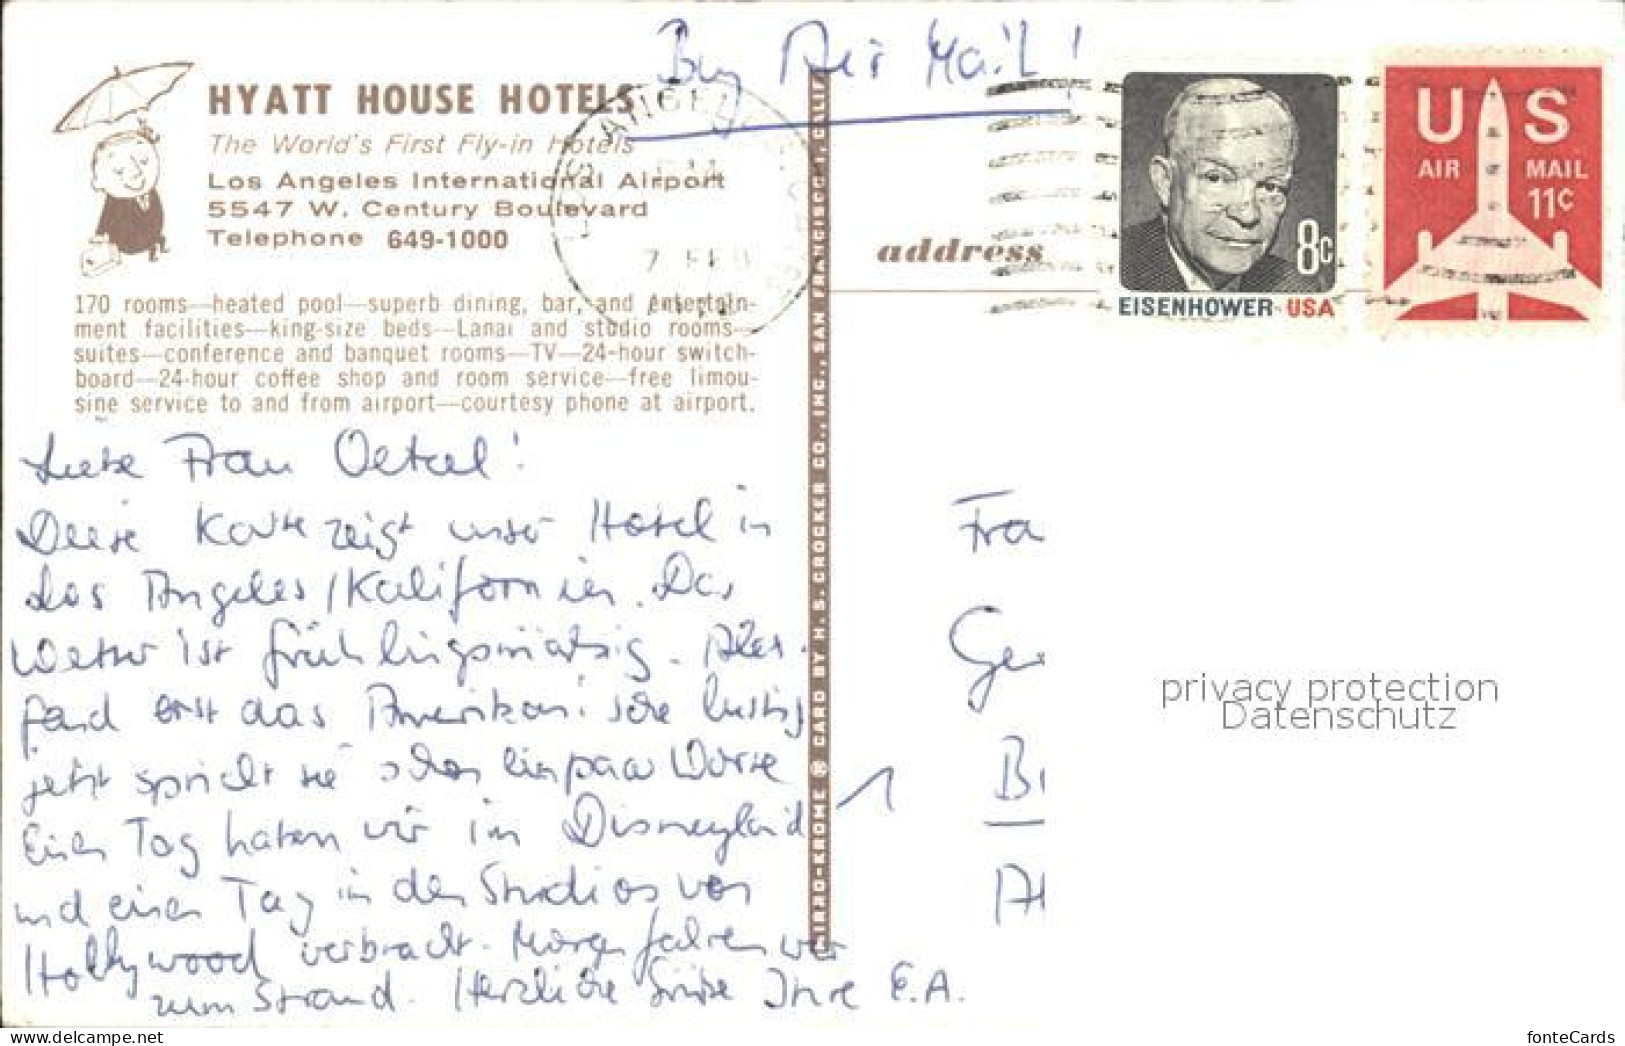 By Air Mail!
HYATT HOUSE HOTELS
The World's First Fly-in Hotels
Los Angeles International Airport
5547 W. Century Boulevard
Telephone 649-1000
170 rooms—heated pool—superb dining, bar, and entertain-
ment facilities—king-size beds—Lanai and studio rooms—
suites—conference and banquet rooms—TV—24-hour switch-
board—24-hour coffee shop and room service—free limou-
sine service to and from airport—courtesy phone at airport.
LOS ANGELES
7 FEB
address
8c
EISENHOWER·USA
US
AIR MAIL
11¢
MIRRO-KROME ® CARD BY H. S. CROCKER CO., INC., SAN FRANCISCO 1, CALIF.
Liebe Frau Oetzel!
Diese Karte zeigt unser Hotel in
Los Angeles/Kalifornien. Das
Wetter ist frühlingsmäßig.
fand erst das lustig
jetzt spricht sie schon ein paar Worte
Einen Tag haben wir in Disneyland
und einen Tag in den Studios von
Hollywood verbracht. Morgen fahren wir
zum Strand. Herzliche Grüße Ihre E.A.
Fra
Ger
B
A
privacy protection
Datenschutz
fonteCards